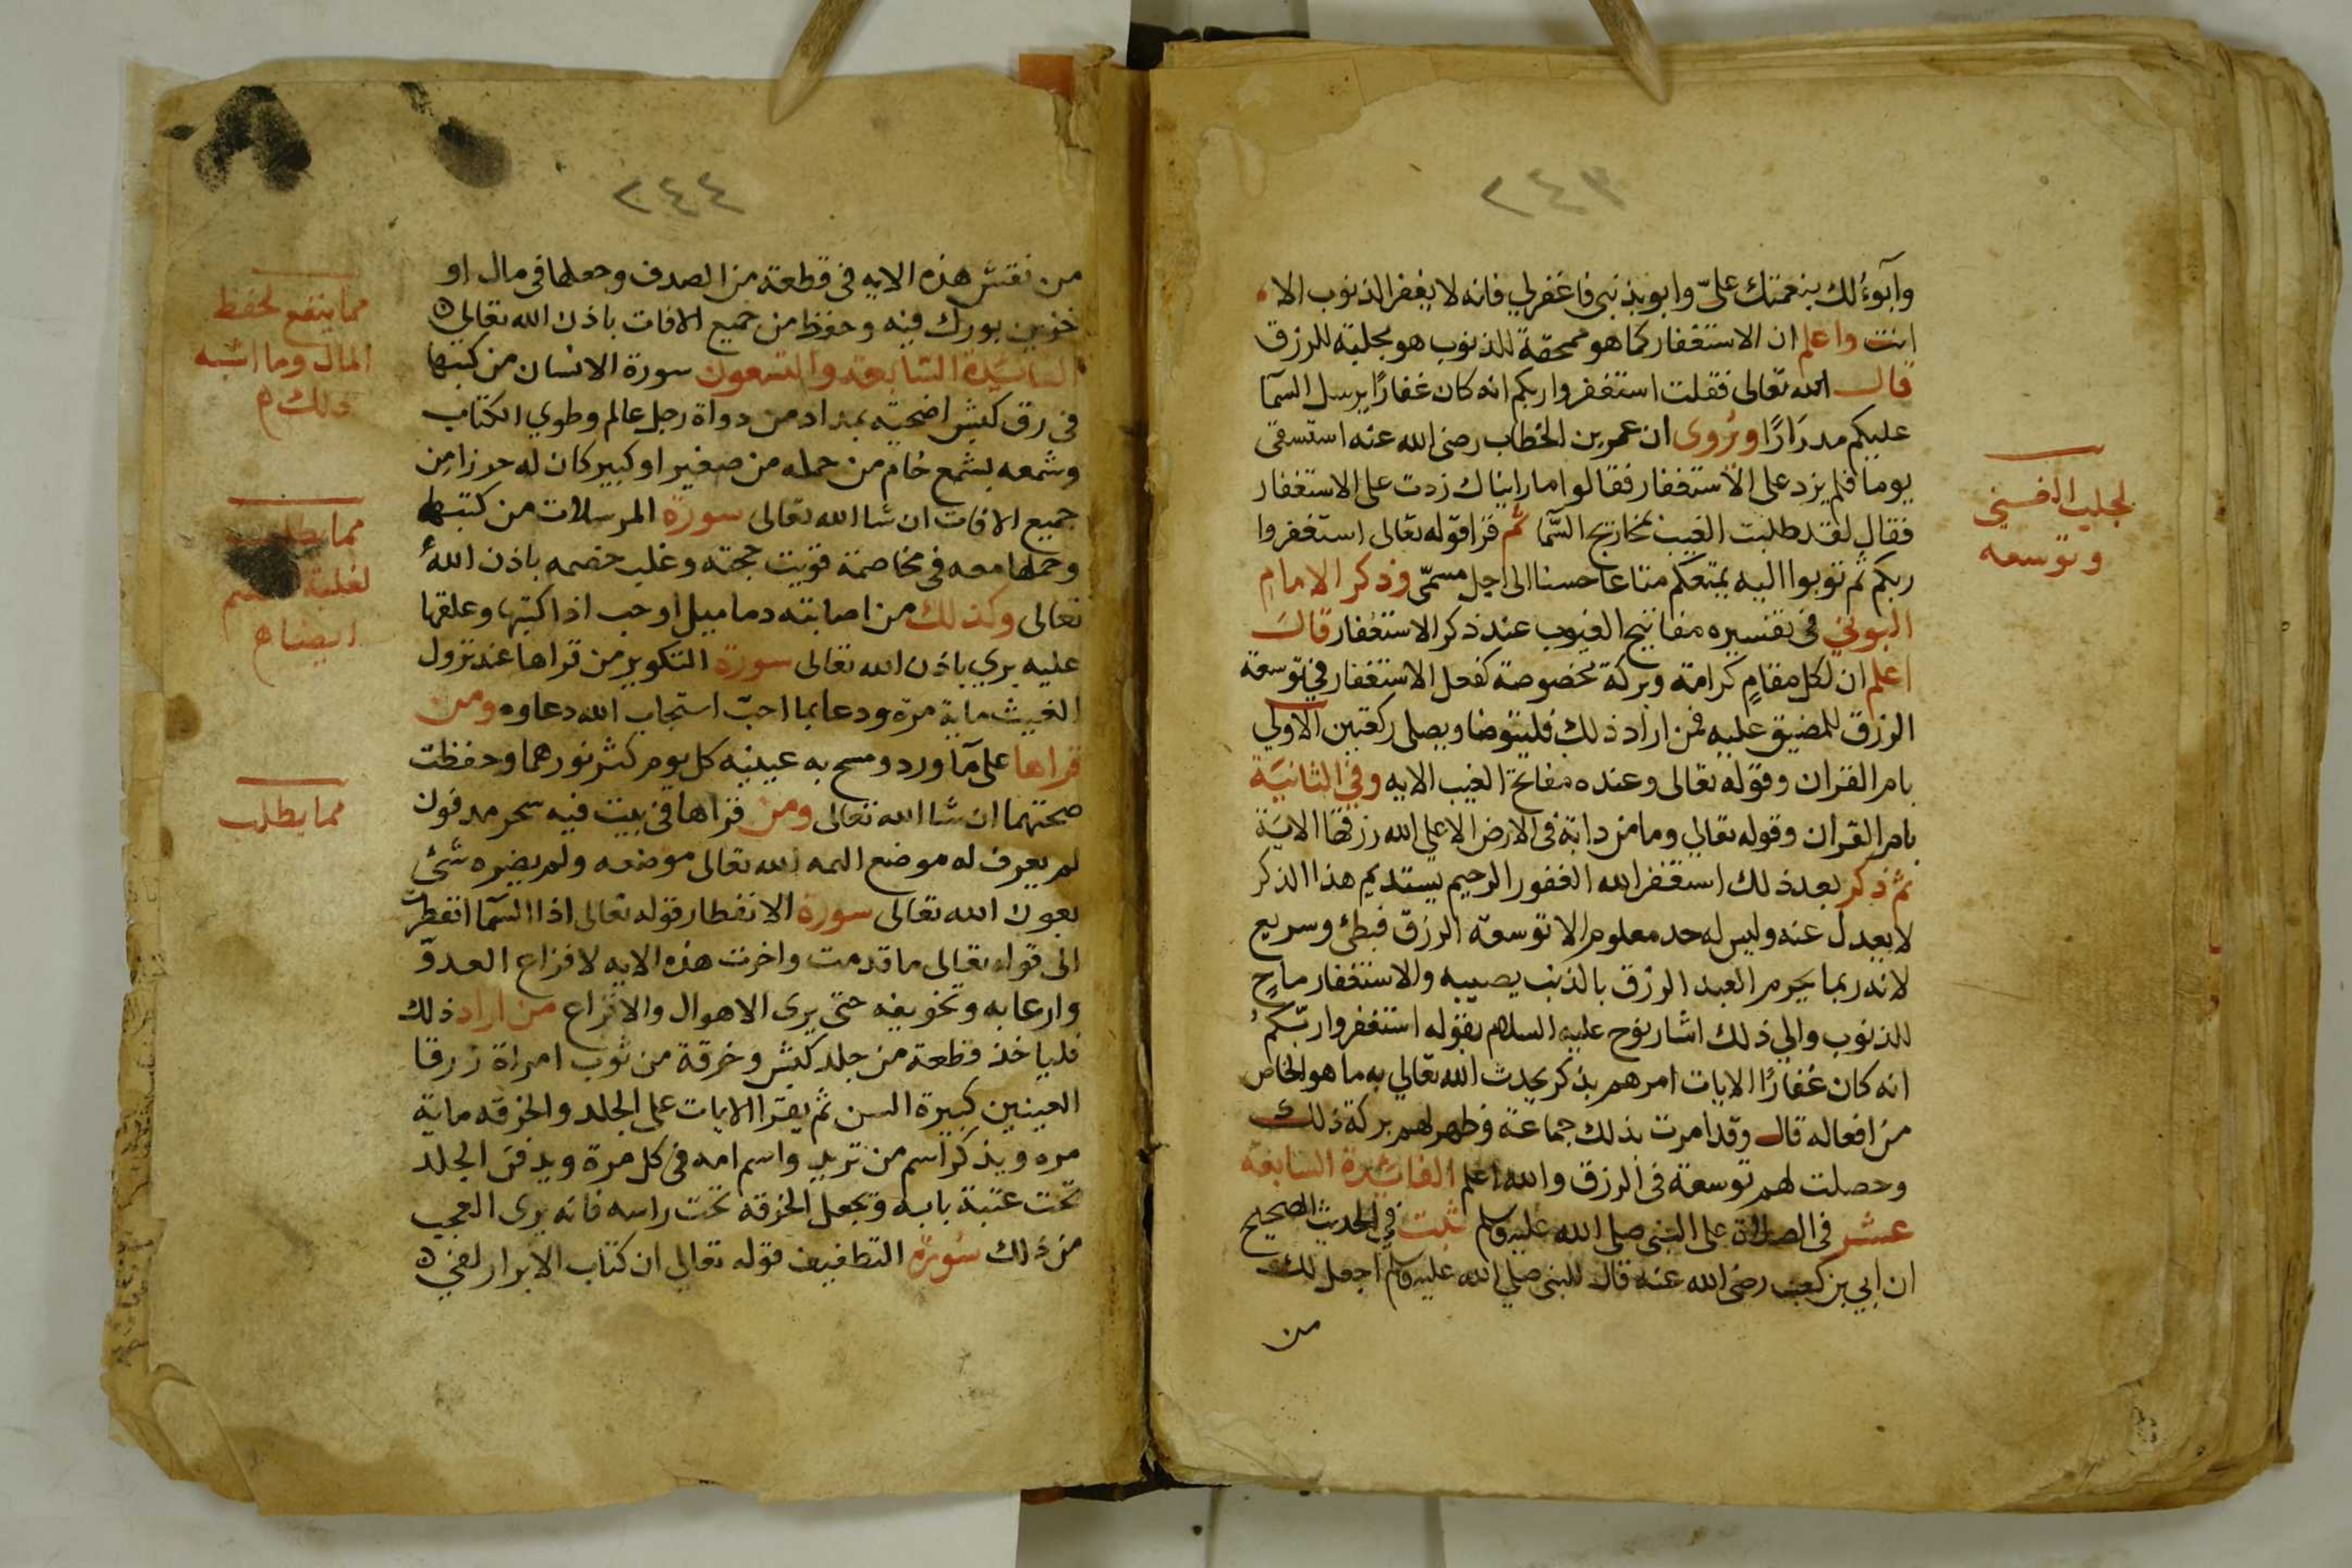 ٢٤٣
وأبوءُ لك بنعمتك علىّ وابو بذنبى فاغفرلي فانه لا يغفر الذنوب الا
انت واعلم ان الاستغفار كما هو ممحقة للذنوب هو مجلبة للرزق
قال الله تعالى فقلت استغفروا ربكم انه كان غفارًا يرسل السما
عليكم مدرارًا ورُوى ان عمر بن الخطاب رضى الله عنه استسقى
يوما فلم يزد على الاستغفار فقالوا ما رايناك زدت على الاستغفار
فقال لقد طلبت الغيب بمخاريج السّما ثم قرا قوله تعالى استغفروا
ربكم ثم توبوا اليه يمتعكم متاعا حسنا الى اجل مسمّى وذكر الامام
البوني فى تفسيره مفاتيح الغيوب عند ذكر الاستغفار قال
اعلم ان لكل مقامٍ كرامة وبركة مخصوصة كفعل الاستغفار في توسعة
الرزق للمضيق عليه فمن اراد ذلك فليتوضا ويصلى ركعتين الاولي
بام القران وقوله تعالى وعنده مفاتح الغيب الايه وفي الثانيَة
بام القران وقوله تعالي وما من دابة فى الارض الا على الله رزقها الايَة
ثم ذكر بعد ذلك استغفر الله الغفور الرحيم يستديم هذا الذكر
لا يعدل عنه وليس له حد معلوم الا توسعة الرزق فبطئ وسريع
لانه ربما يحرم العبد الرزق بالذنب يصيبه والاستغفار ماحٍ
للذنوب والي ذلك اشار نوح عليه السلام بقوله استغفروا ربّكم
انه كان غفارًا الايات امرهم بذكر يحدث الله تعالي به ما هو الخاص
من افعاله قال وقد امرت بذلك جماعة وظهر لهم بركة ذلك
وحصلت لهم توسعة فى الرزق والله اعلم الفائدة السابعة
عشر فى الصلاة على النبى صلى الله عليه وسلم ثبت في الحديث الصحيح
ان ابي بن كعب رضى الله عنه قال للنبى صلي الله عليه وسلم اجعل لك
من
لجلب الغنى
وتوسعه
٢٤٤
من نقش هذه الايه فى قطعة من الصدف وجعلها فى مال او
خزين بورك فيه وحفظ من جميع الافات باذن الله تعالي
الفائدة السابعة والتسعون سورة الانسان من كتبها
فى رق كبش اضحية بمداد من دواة رجل عالم وطوي الكتاب
وشمعه بشمع خام من حمله من صغير او كبير كان له حرزا من
جميع الافات ان شا الله تعالى سورة المرسلات من كتبها
وحملها معه فى مخاصمة قويت حجته وغلب خصمه باذن الله
تعالى وكذلك من اصابته دماميل او حب اذا كتبها وعلقها
عليه بري باذن الله تعالى سورة التكوير من قراها عند نزول
الغيث ماية مرة ودعا بما احبّ استجاب الله دعاوه ومن
قراها على مآ ورد ومسح به عينيه كل يوم كثر نورهما وحفظت
صحتهما ان شا الله تعالى ومن قراها فى بيت فيه سحر مدفون
لم يعرف له موضع الهمه الله تعالى موضعه ولم يضره شئ
بعون الله تعالى سورة الانفطار قوله تعالى اذا السّما انفطرت
الى قوله تعالى ما قدمت واخرت هذه الايه لافزاع العدوّ
وارعابه وتخويفه حتى يرى الاهوال والافزاع من اراد ذلك
فلياخذ قطعة من جلد كبش وخرقة من ثوب امراة زرقا
العينين كبيرة السن ثم يقرا الايات على الجلد والخرقه ماية
مره ويذكر اسم من تريد واسم امه فى كل مرة ويدفن الجلد
تحت عتبة بابه وتجعل الخرقه تحت راسه فانه يرى العجب
من ذلك سُورة التطفيف قوله تعالي ان كتاب الابرار لفي
مما ينفع لحفظ
المال وما اشبه
ذلك
مما يطلب
لغلبة الخصم
ايضا
مما يطلب